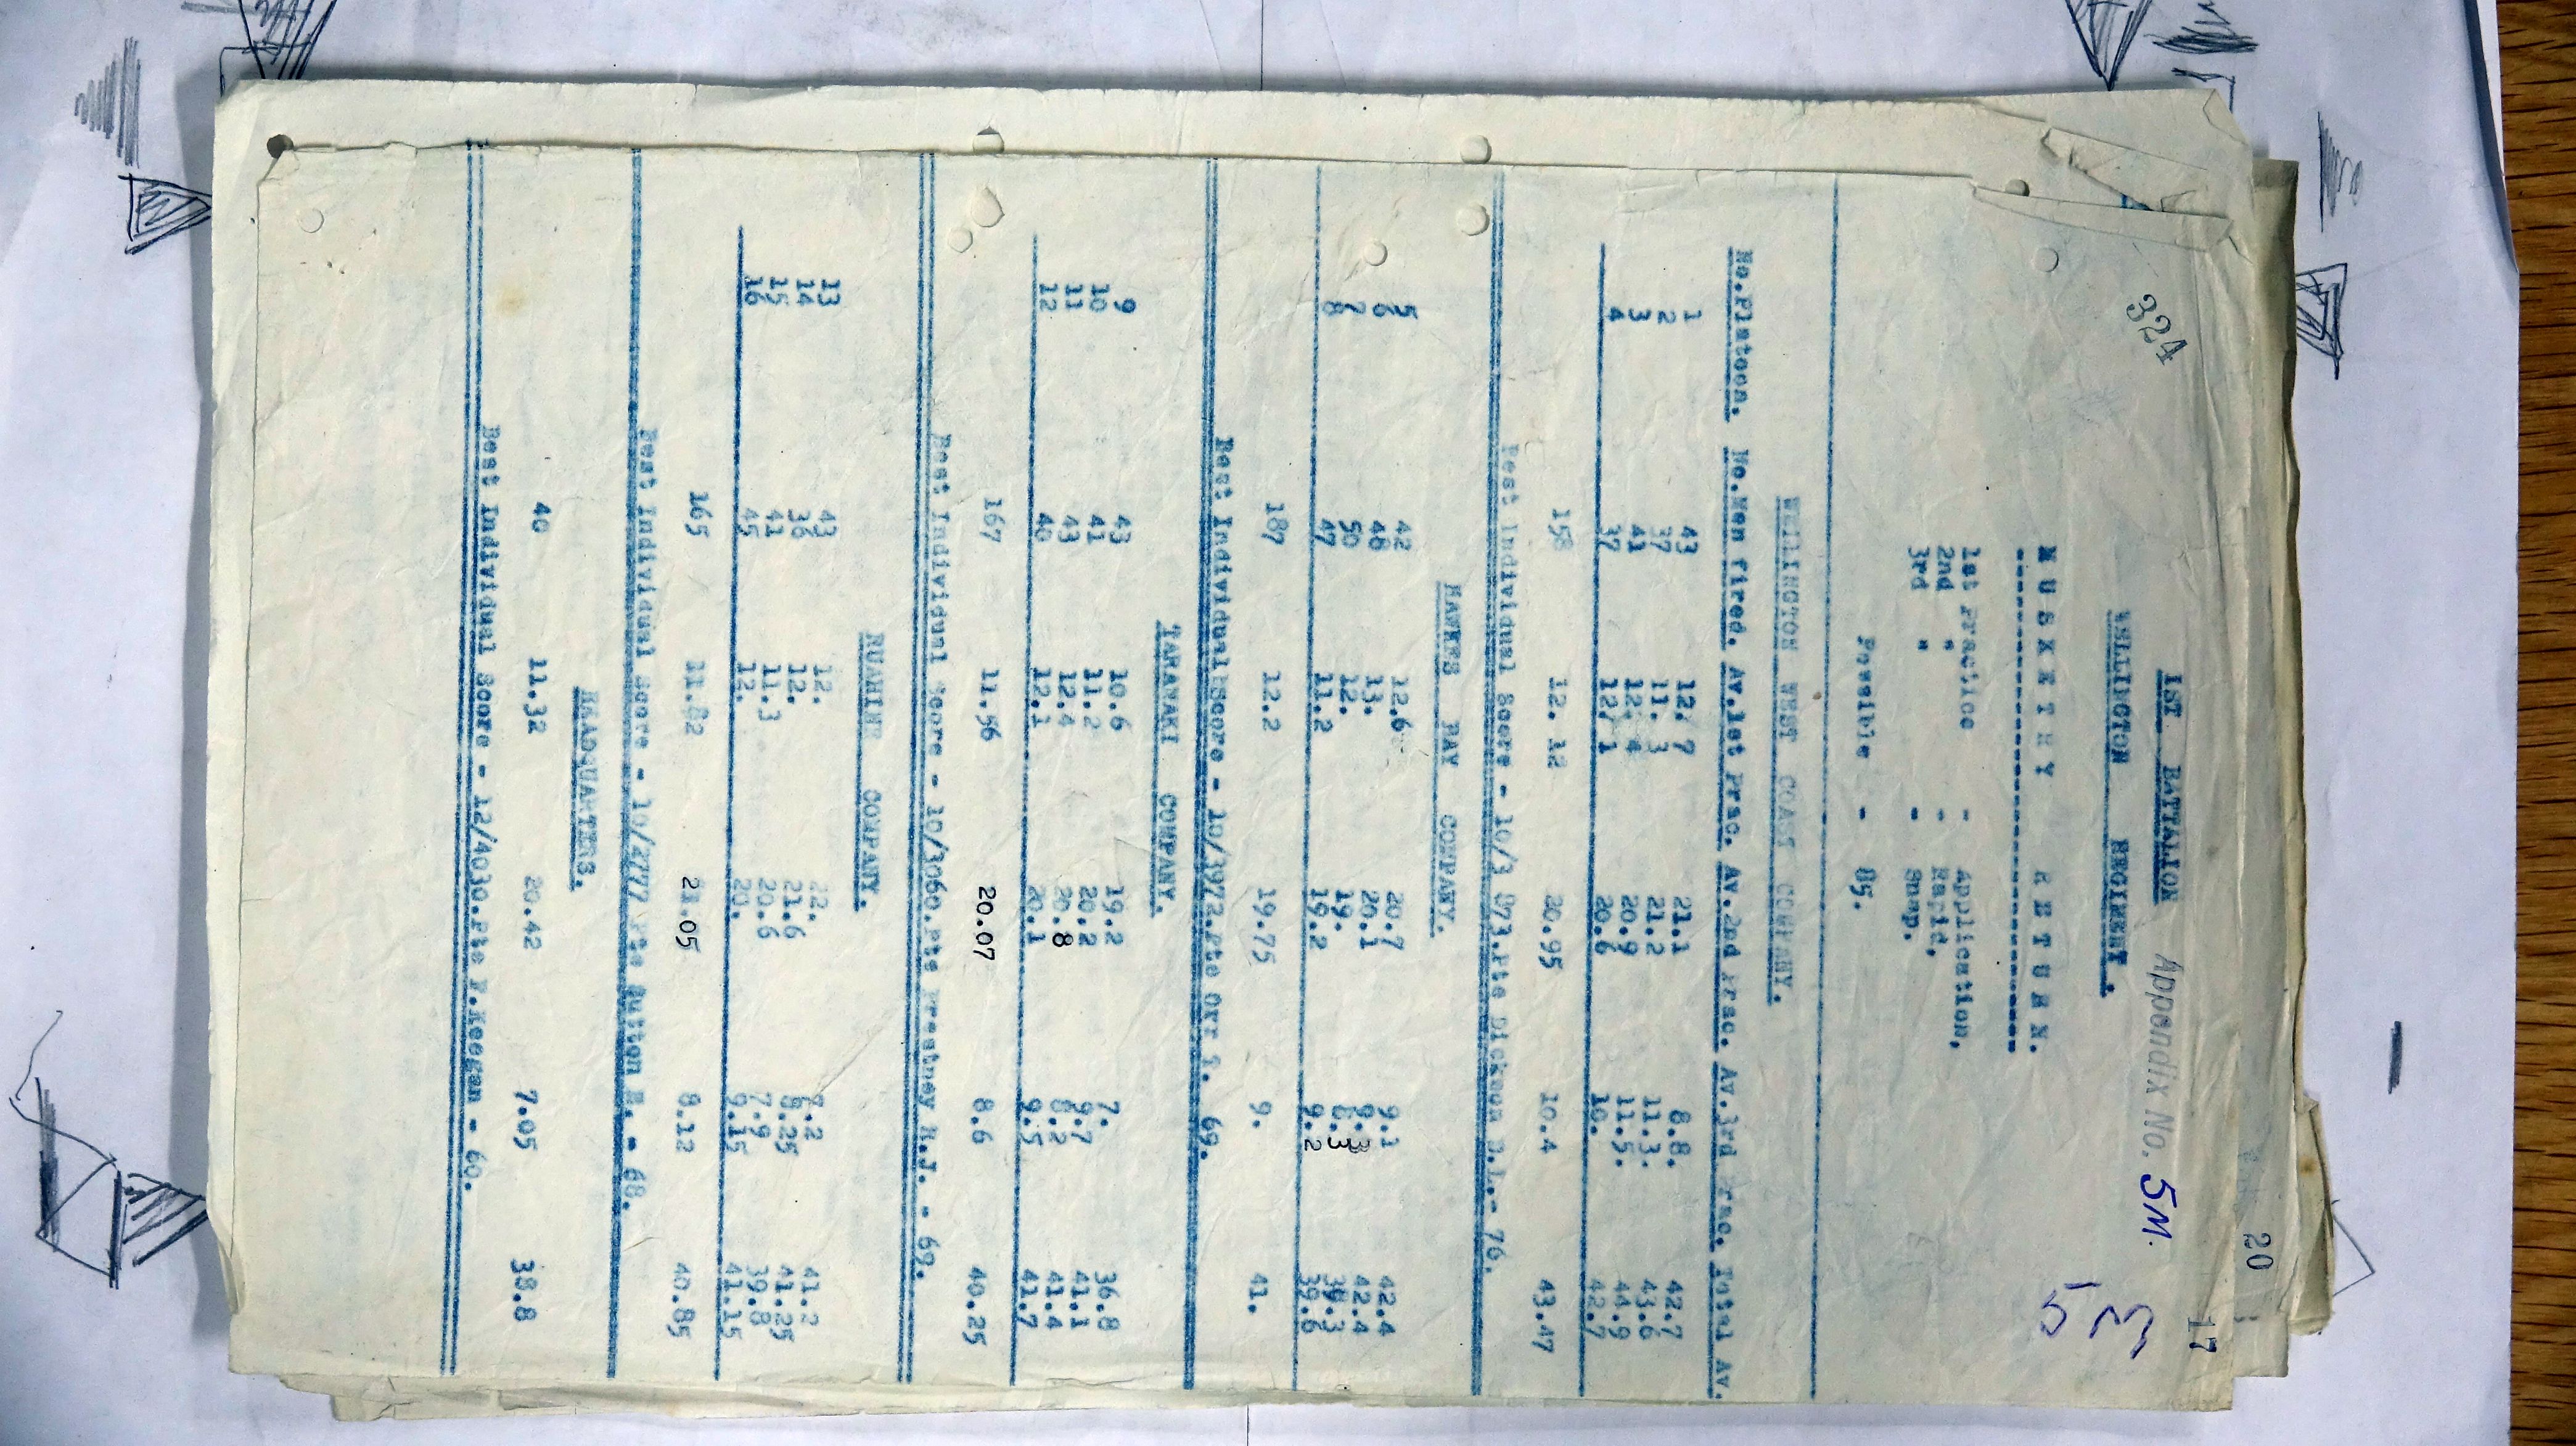 20
17
1ST. BATTALION Appendix No. 5M.
WELLINGTON REGIMENT.
5M
324
MUSKETRY RETURN.
1st Practice - Application,
2nd " - Rapid,
3rd " - Snap.
Possible - 85.
WELLINGTON WEST COAST COMPANY.
No.Platoon. No.Men fired. Av.1st Prac. Av.2nd Prac. Av.3rd Prac. Total Av.
1 43 12. 7 21.1 8.8. 42.7
2 37 11. 3 21.2 11.3. 43.6
3 41 12. 4 20.9 11.5. 44.9
4 37 12. 1 20.6 10. 42.7
158 12. 12 20.95 10.4 43.47
Best Individual Score - 10/3 873.Pte Dickson - 76.
HAWKES BAY COMPANY.
5 42 12.6 20.7 9.1 42.4
6 48 13. 20.1 9.3 42.4
7 50 12. 19. 8.3 39.3
8 47 11.2 19.2 9.2 39.6
187 12.2 19.75 9. 41.
Best Individual Score - 10/3972.Pte Orr 69.
TARANAKI COMPANY.
9 43 10.6 19.2 7. 36.8
10 41 11.2 20.2 9.7 41.1
11 43 12.4 20.8 8.2 41.4
12 40 12.1 20.1 9.5 41.7
167 11.56 20.07 8.6 40.25
Best Individual Score - 10/3060.Pte Prestney R.J. - 69.
RUAHINE COMPANY.
13 43 12. 22. 7.2 41.2
14 36 12. 21.6 8.25 41.25
15 41 11.3 20.6 7.9 39.8
16 45 12. 20. 9.15 41.15
165 11.82 21.05 8.12 40.85
Best Individual Score - Pte Sutton - 68.
HEADQUARTERS.
40 11.32 20.42 7.05 38.8
Best Individual Score - 12/4030.Pte F.Keegan - 60.